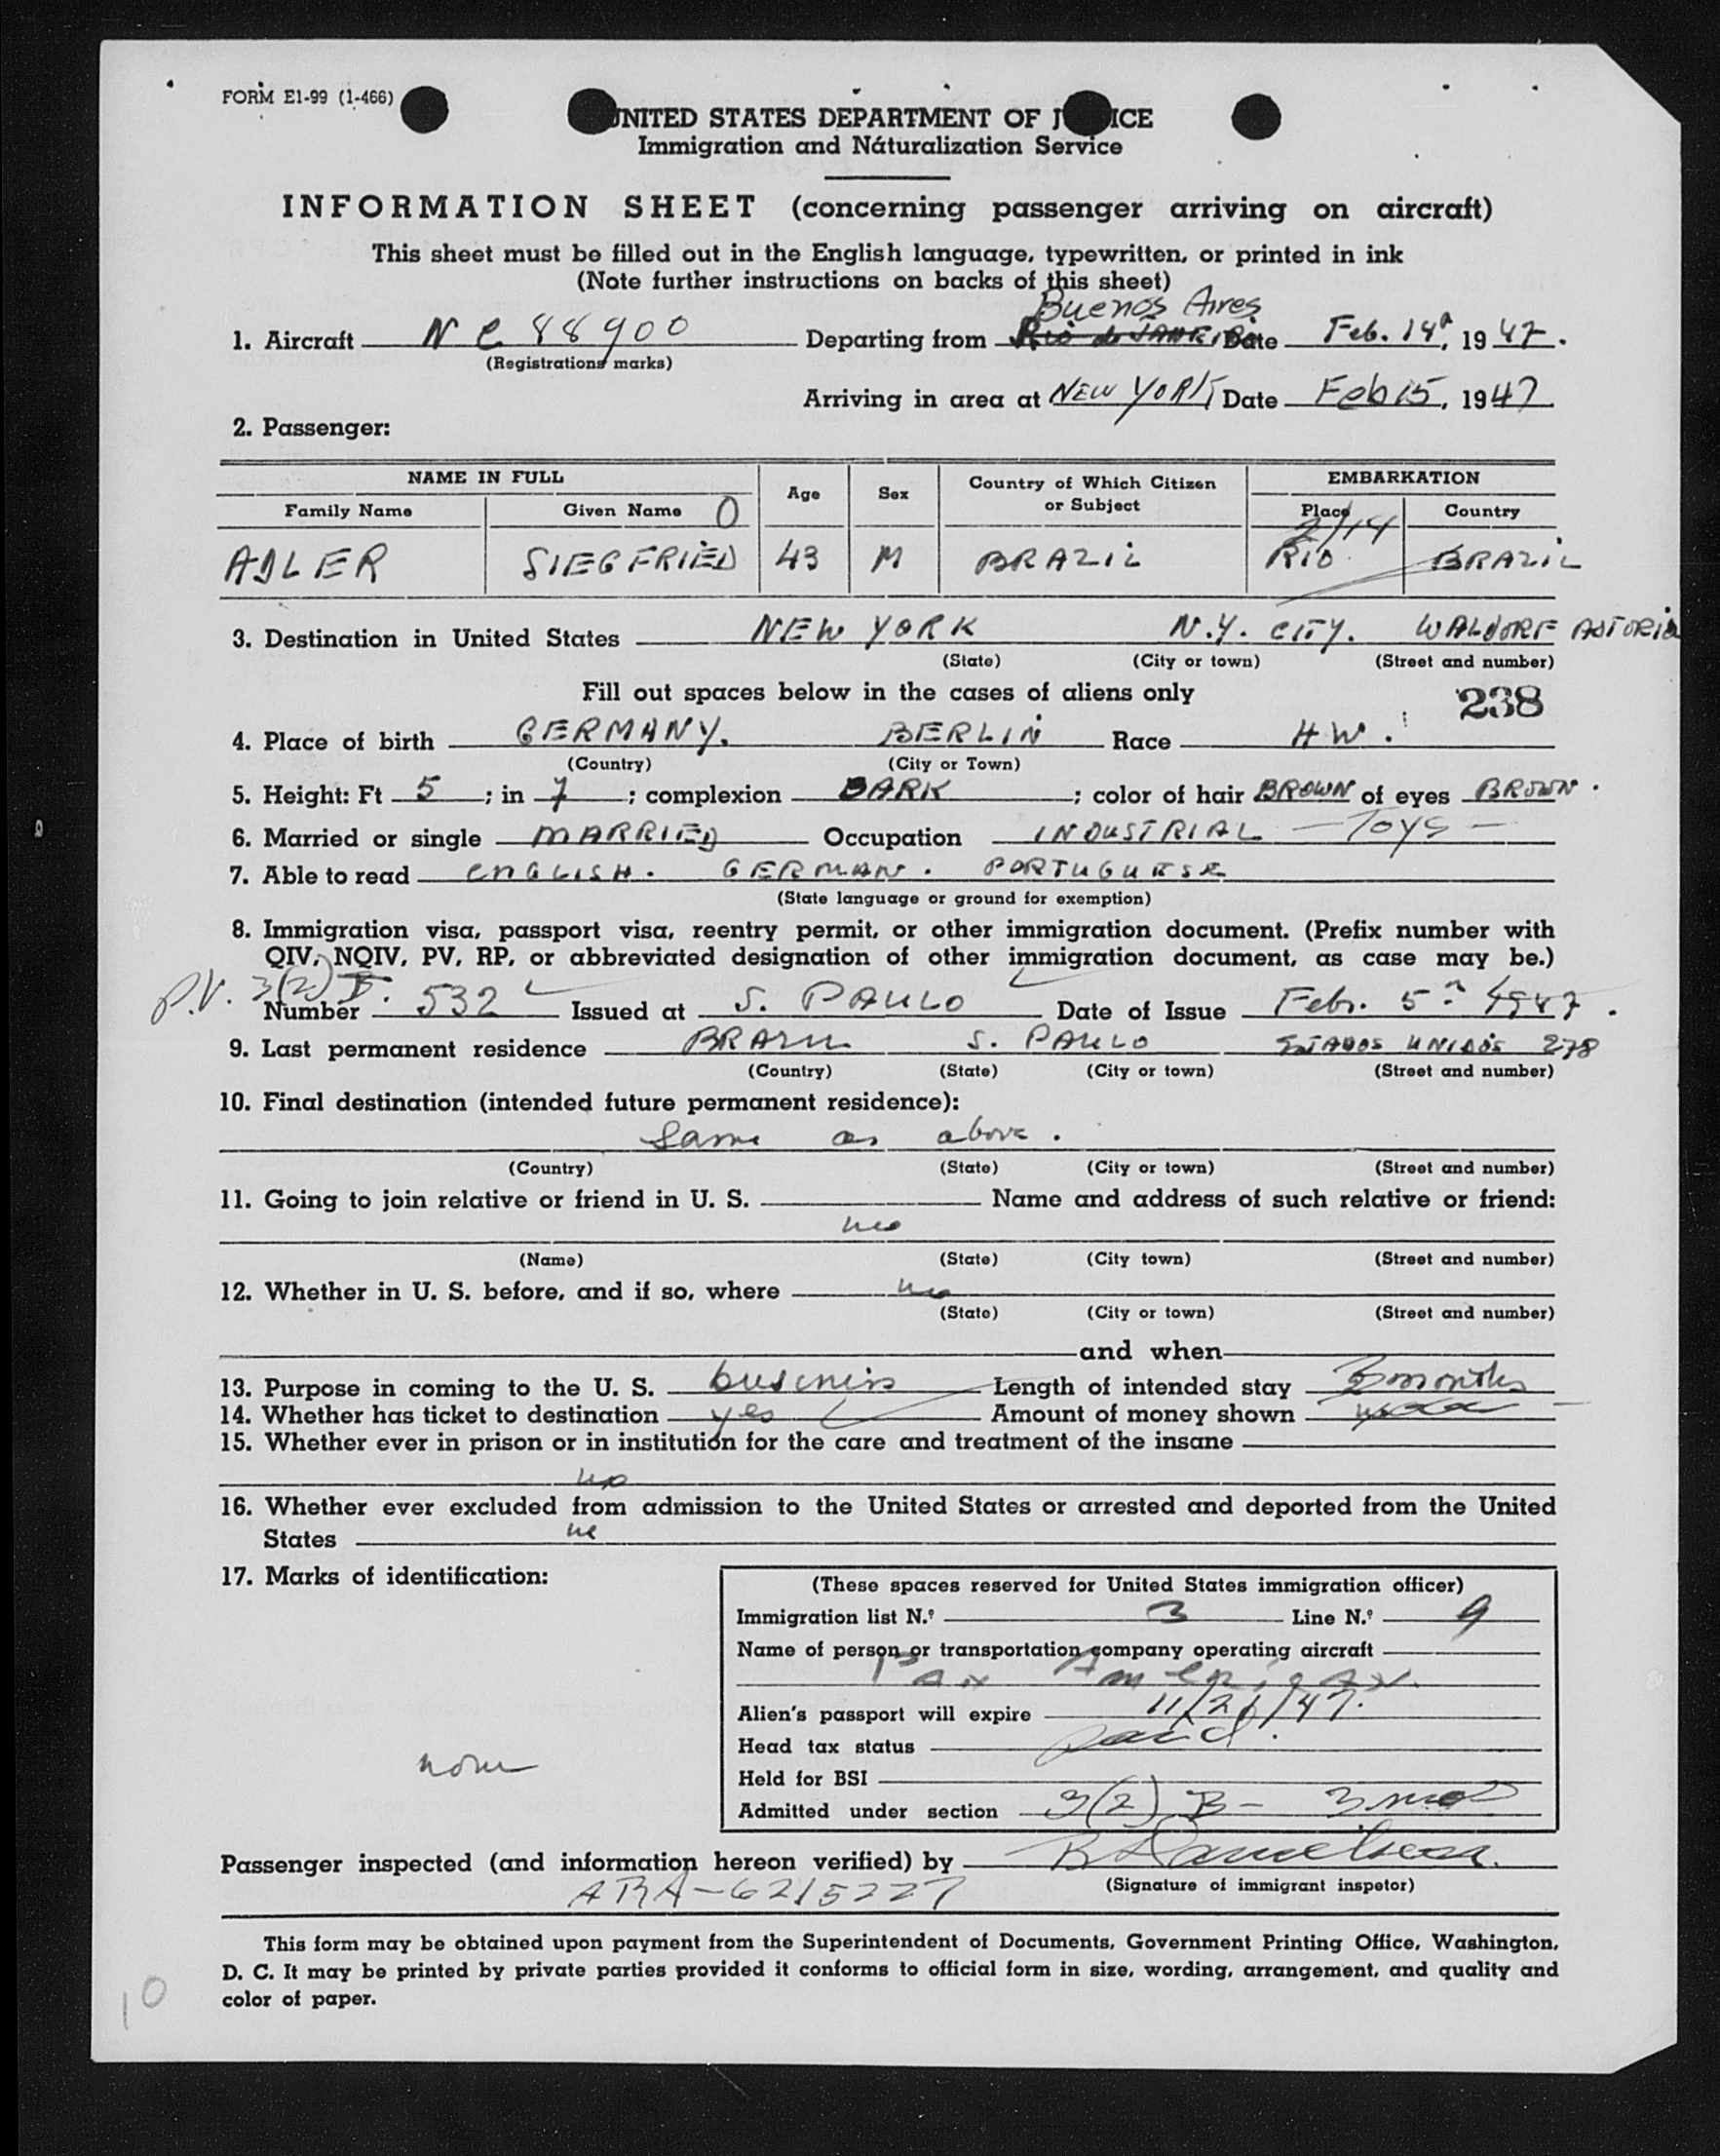 FORM E1-99 (1-466)
UNITED STATES DEPARTMENT OF J ICE
Immigration and Náturalization Service
INFORMATION SHEET (concerning passenger arriving on aircraft)
This sheet must be filled out in the English language, typewritten, or printed in ink
(Note further instructions on backs of this sheet)
Buenos Aires
1. Aircraft NC 88900 Departing from Rio de JANEIRO Date Feb. 14, 1947.
(Registrations marks)
Arriving in area at NEW YORK Date Feb 15, 1947
2. Passenger:
NAME IN FULL Age Sex Country of Which Citizen or Subject EMBARKATION
Family Name Given Name O Place Country
2/14
ADLER SIEGFRIED 43 M BRAZIL RIO BRAZIL
3. Destination in United States NEW YORK N.Y. CITY. WALDORF ASTORIA
(State) (City or town) (Street and number)
Fill out spaces below in the cases of aliens only 238
4. Place of birth GERMANY. BERLIN Race HW.
(Country) (City or Town)
5. Height: Ft 5 ; in 7 ; complexion DARK ; color of hair BROWN of eyes BROWN.
6. Married or single MARRIED Occupation INDUSTRIAL - Toys -
7. Able to read ENGLISH. GERMAN. PORTUGUESE
(State language or ground for exemption)
8. Immigration visa, passport visa, reentry permit, or other immigration document. (Prefix number with
QIV, NQIV, PV, RP, or abbreviated designation of other immigration document, as case may be.)
P.V. 3(2)
Number 532 Issued at S. PAULO Date of Issue Febr. 5 1947.
9. Last permanent residence BRAZIL S. PAULO ESTADOS UNIDOS 278
(Country) (State) (City or town) (Street and number)
10. Final destination (intended future permanent residence):
Same as above.
(Country) (State) (City or town) (Street and number)
11. Going to join relative or friend in U. S. Name and address of such relative or friend:
no
(Name) (State) (City town) (Street and number)
12. Whether in U. S. before, and if so, where no
(State) (City or town) (Street and number)
and when
13. Purpose in coming to the U. S. business Length of intended stay 3 months
14. Whether has ticket to destination yes Amount of money shown
15. Whether ever in prison or in institution for the care and treatment of the insane
no
16. Whether ever excluded from admission to the United States or arrested and deported from the United
States no
17. Marks of identification:
none
(These spaces reserved for United States immigration officer)
Immigration list N.º 3 Line N.º 9
Name of person or transportation company operating aircraft
Pan American.
Alien's passport will expire 11/21/47.
Head tax status paid.
Held for BSI
Admitted under section 3(2) B - 3 mos
Passenger inspected (and information hereon verified) by
ARA-6215227 (Signature of immigrant inspetor)
This form may be obtained upon payment from the Superintendent of Documents, Government Printing Office, Washington,
D. C. It may be printed by private parties provided it conforms to official form in size, wording, arrangement, and quality and
color of paper.
10